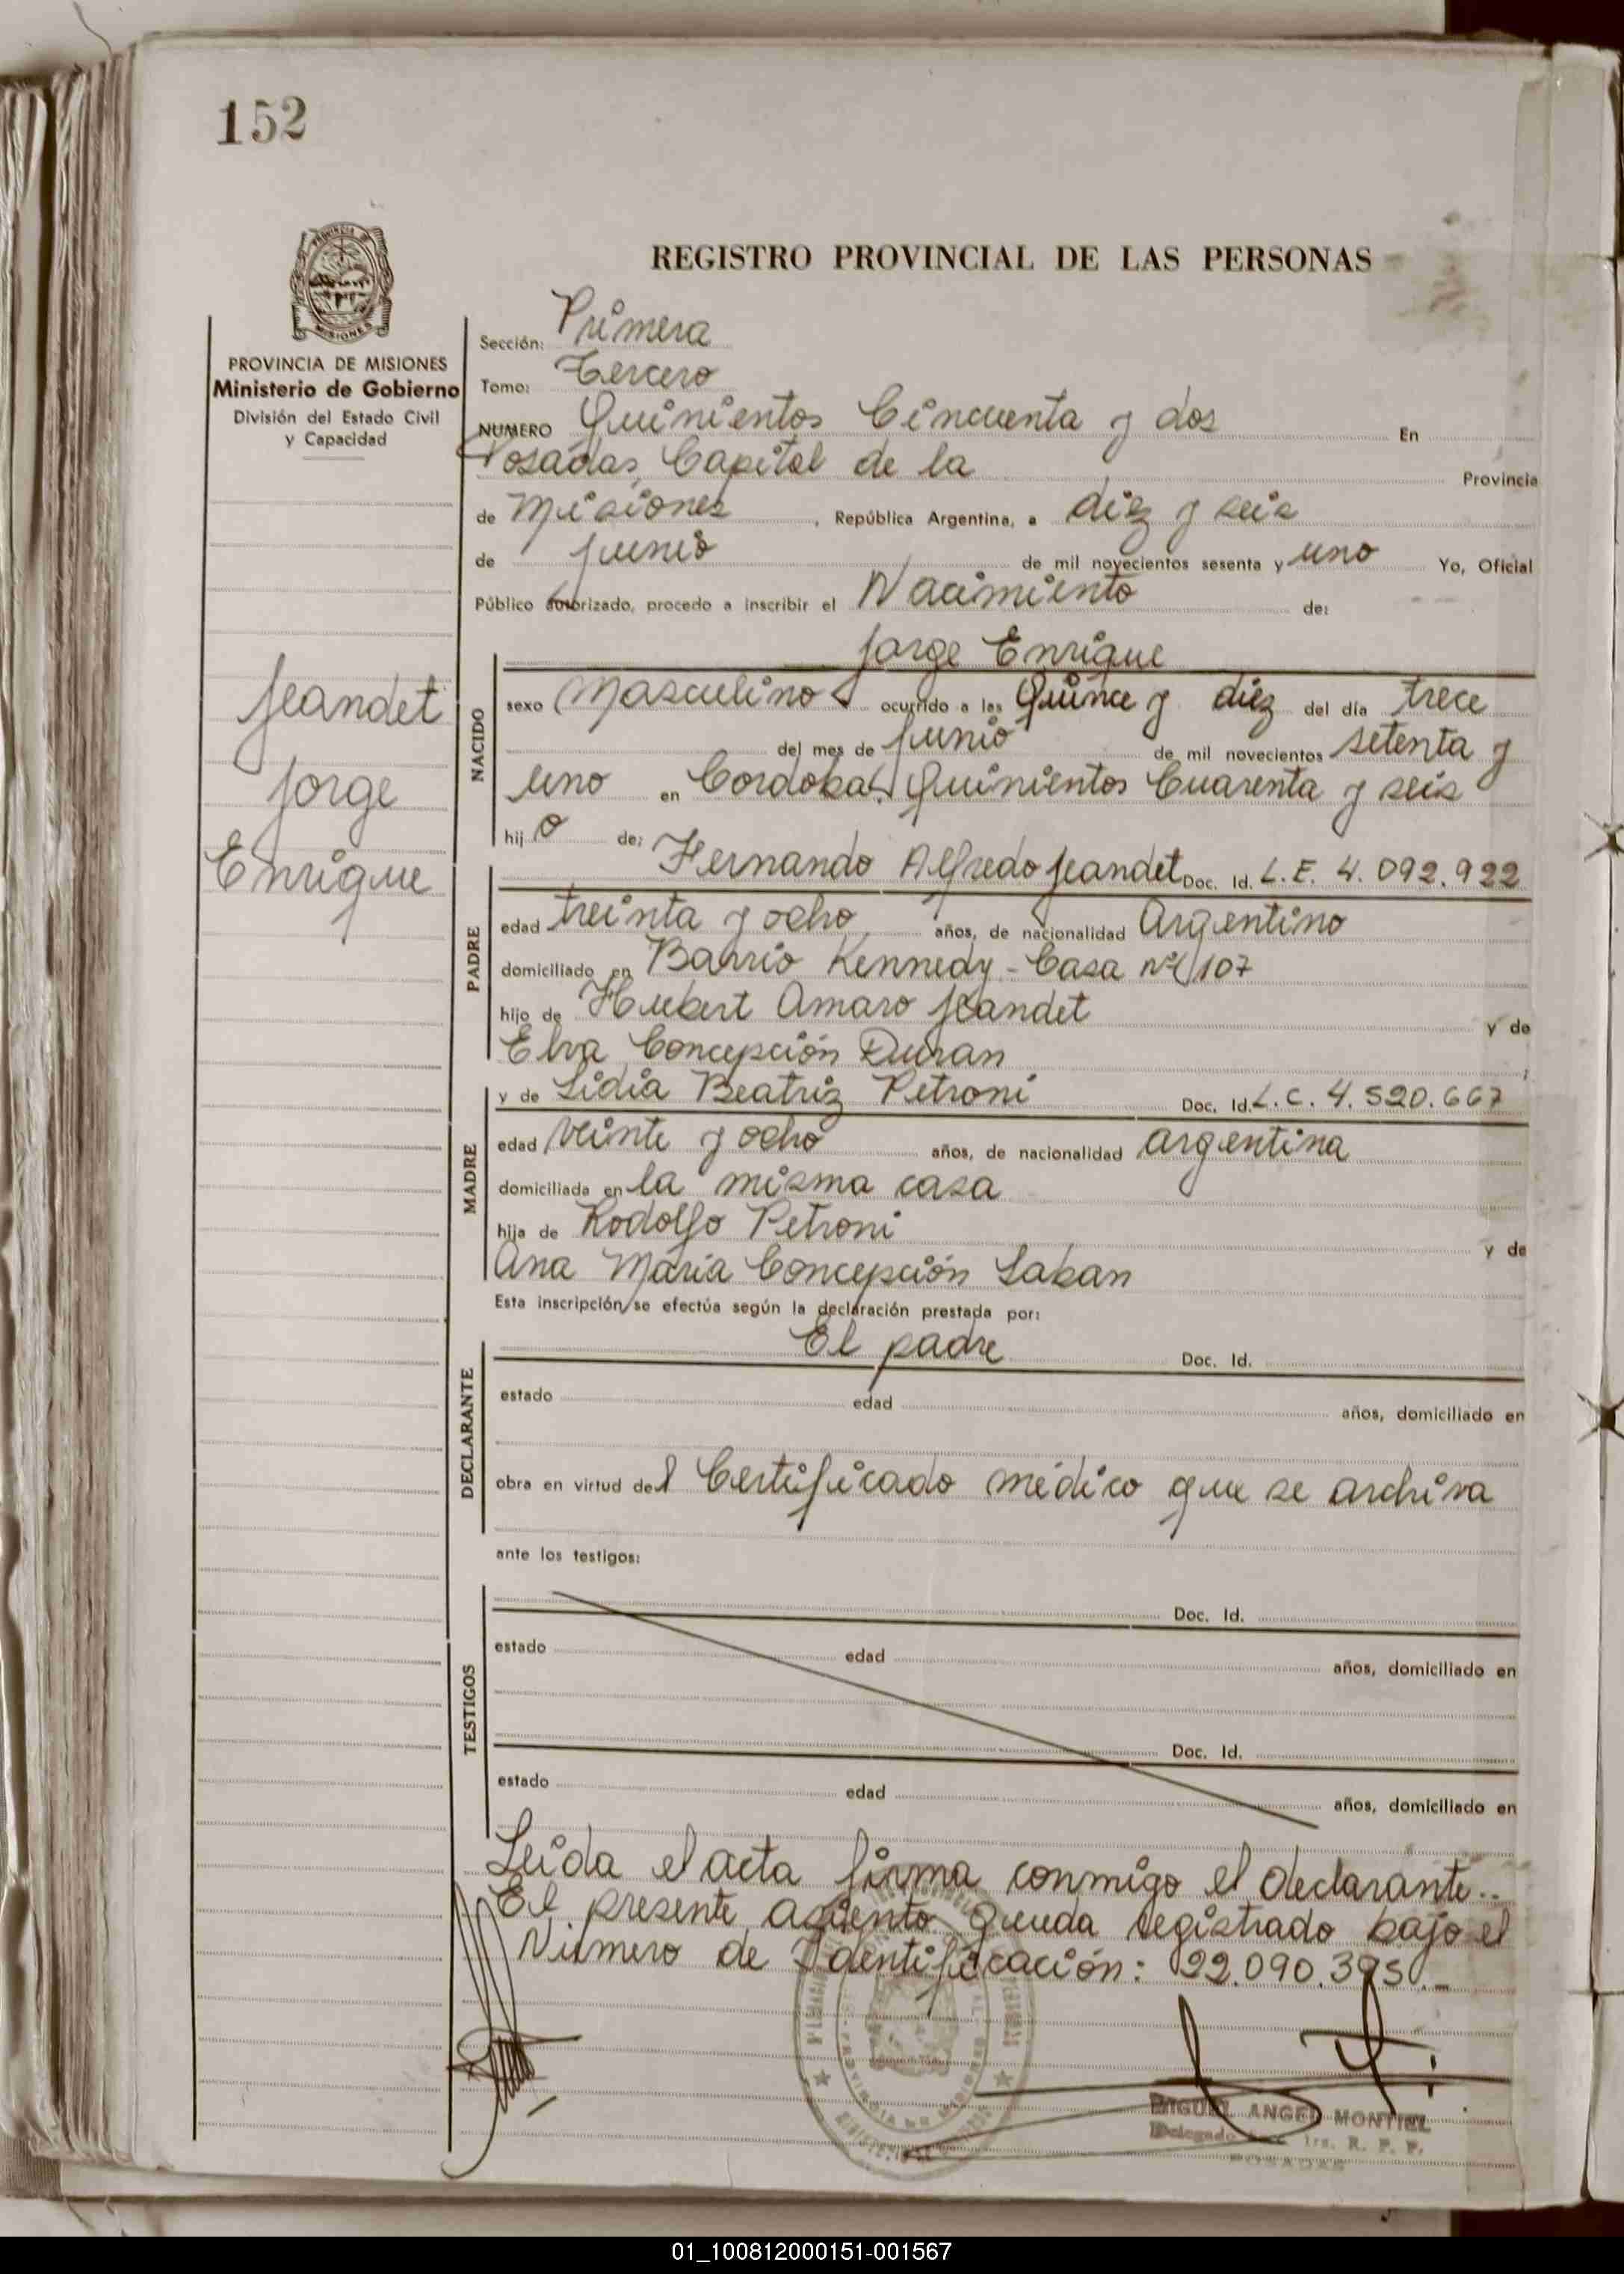 152
REGISTRO PROVINCIAL DE LAS PERSONAS
PROVINCIA DE MISIONES
MISIONES
PROVINCIA DE MISIONES
Ministerio de Gobierno
División del Estado Civil
y Capacidad
Jeandet
Jorge
Enrique
Sección: Primera
Tomo: Tercero
NUMERO Quinientos Cincuenta y dos En
Posadas, Capital de la Provincia
de Misiones, República Argentina, a diez y seis
de Junio de mil novecientos sesenta y uno Yo, Oficial
Público autorizado, procedo a inscribir el Nacimiento de:
NACIDO
Jorge Enrique
sexo Masculino ocurrido a las Quince y diez del día trece
del mes de Junio de mil novecientos setenta y
uno en Cordoba Quinientos Cuarenta y seis
hij o de: Fernando Alfredo Jeandet Doc. Id. L.E. 4.092.922
PADRE
edad treinta y ocho años, de nacionalidad Argentino
domiciliado en Barrio Kennedy - Casa nº 107
hijo de Hubert Amaro Jeandet y de
Elva Concepción Duran ;
MADRE
y de Lidia Beatriz Petroni Doc. Id. L.C. 4.520.667
edad veinte y ocho años, de nacionalidad argentina
domiciliada en la misma casa
hija de Rodolfo Petroni y de
Ana María Concepción Laban
Esta inscripción se efectúa según la declaración prestada por:
DECLARANTE
El padre Doc. Id.
estado edad años, domiciliado en
obra en virtud del Certificado médico que se archiva
ante los testigos:
TESTIGOS
Doc. Id.
estado edad años, domiciliado en
Doc. Id.
estado edad años, domiciliado en
Leida el acta firma conmigo el declarante..
El presente asiento queda registrado bajo el
Número de Identificación: 22.090.395.-
MIGUEL ANGEL MONTIEL
Delegado R. P. P.
POSADAS
01_100812000151-001567